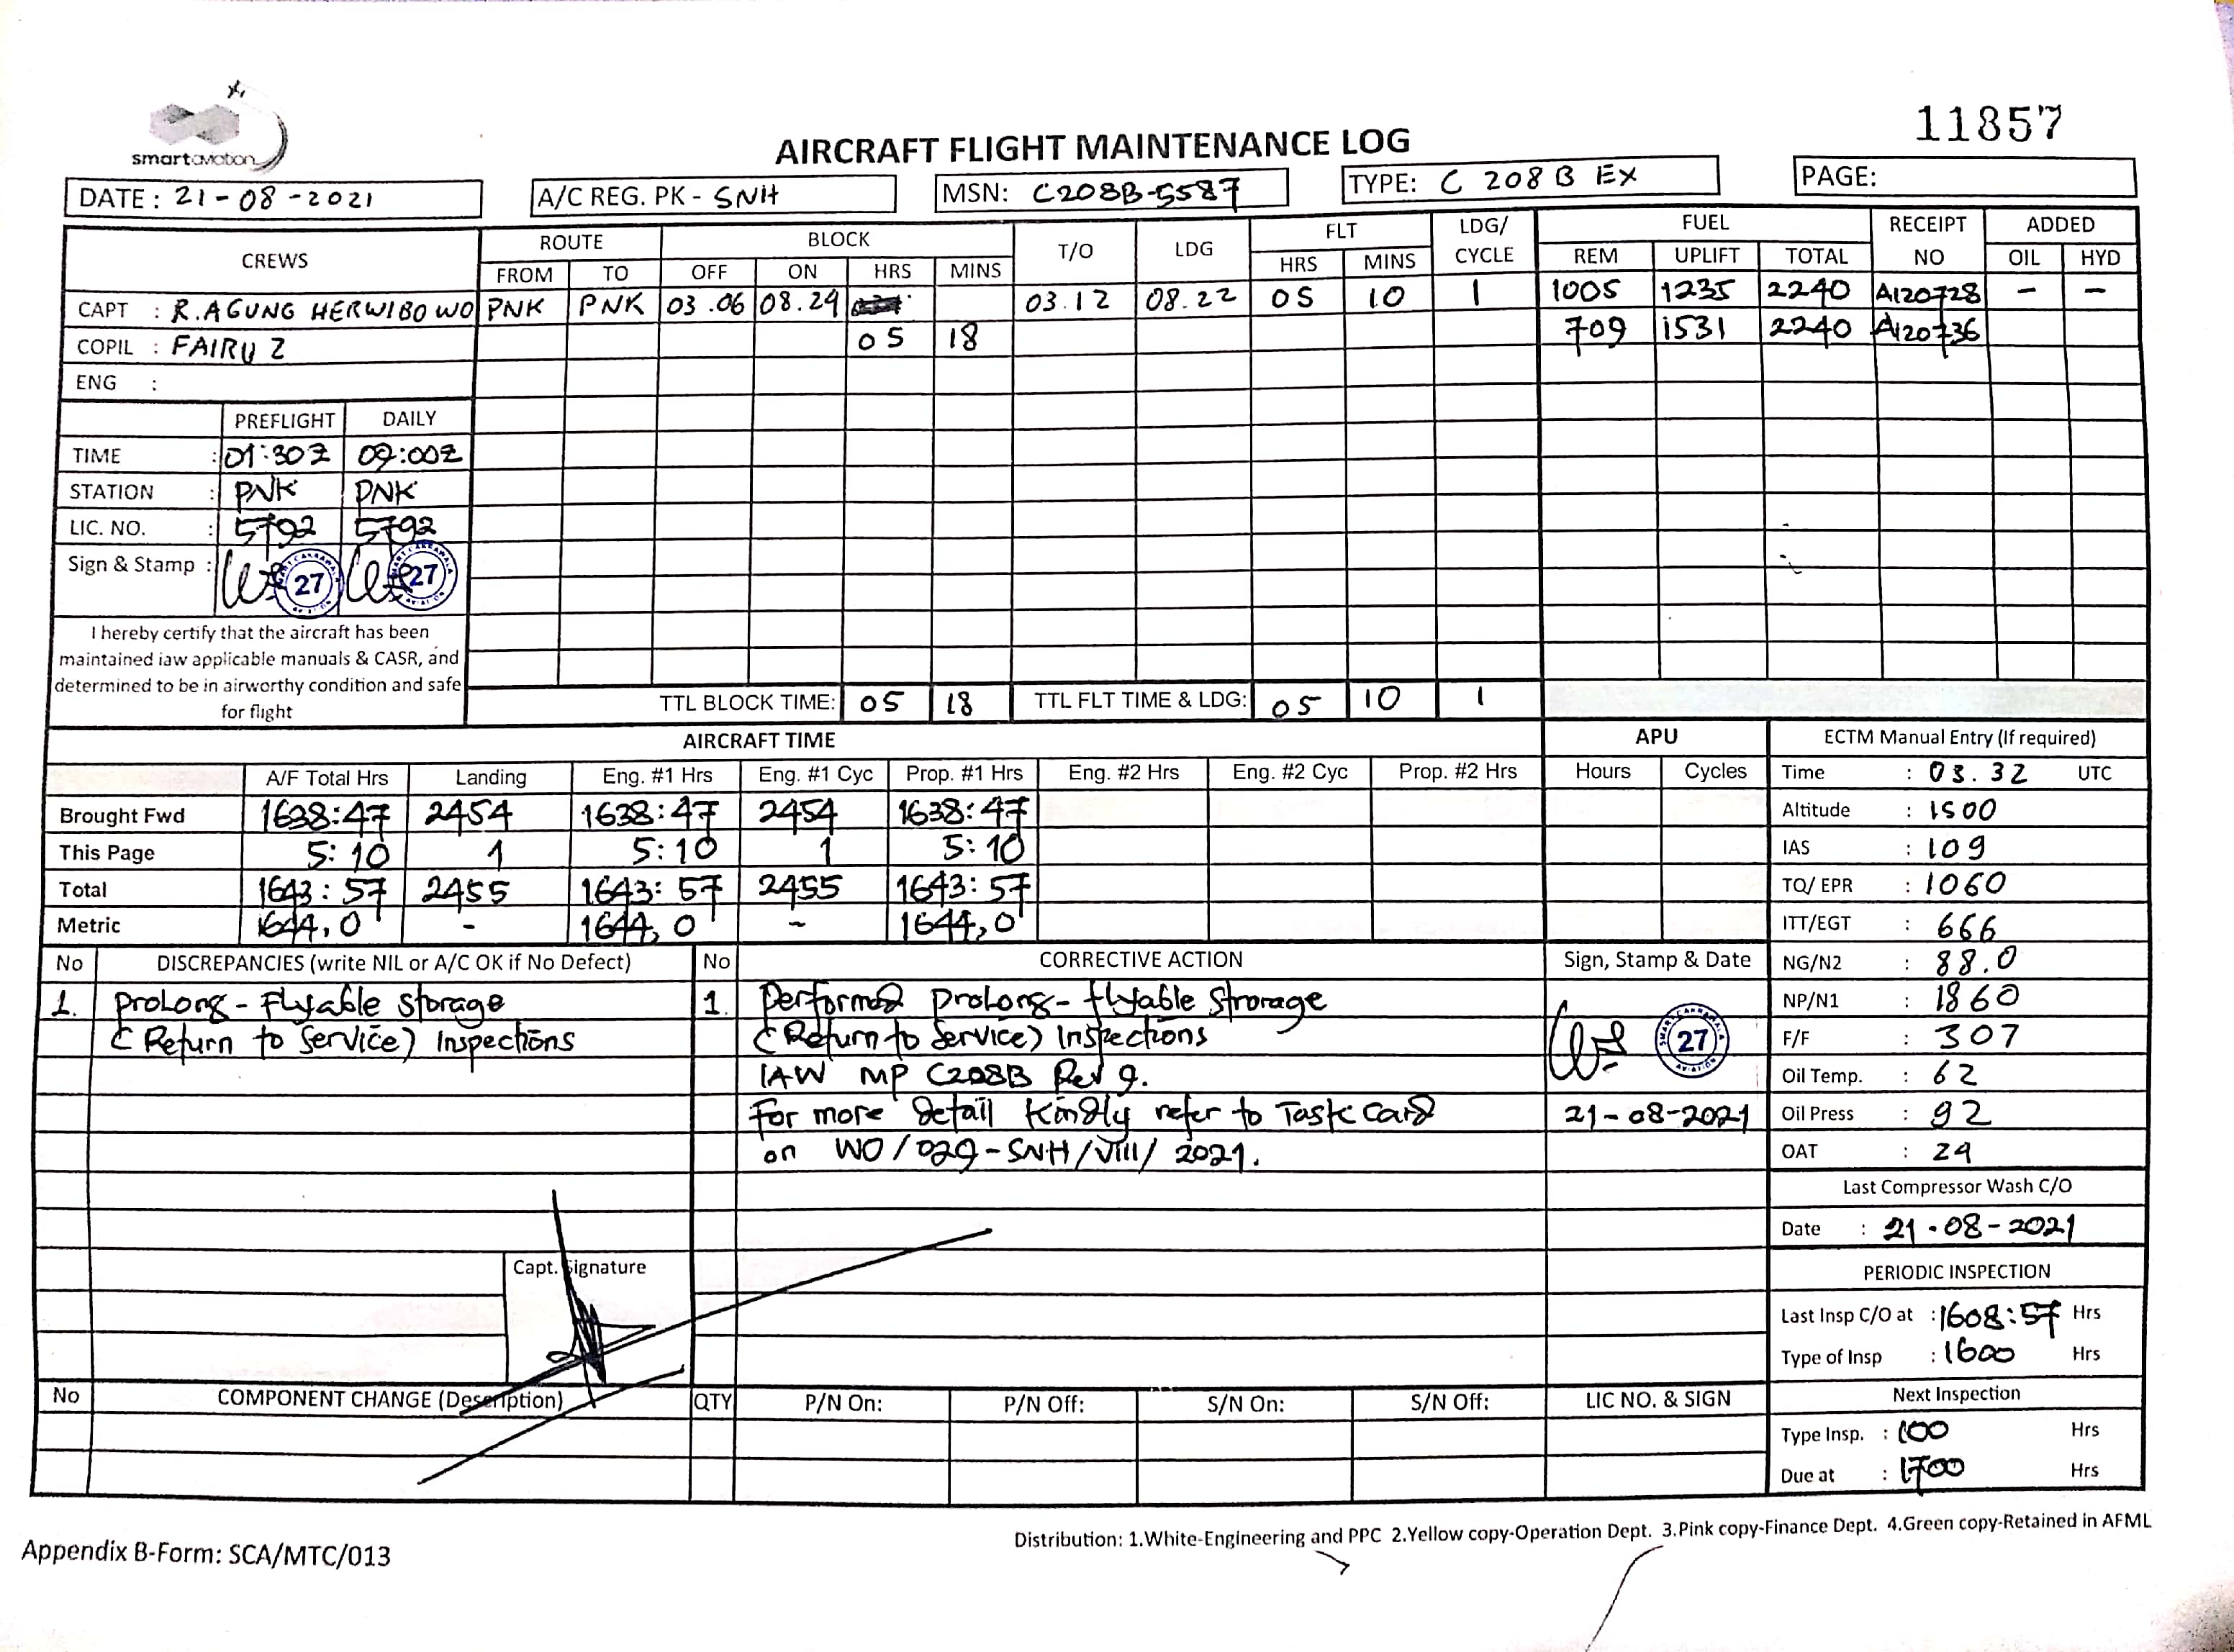 smartaviation
11857
AIRCRAFT FLIGHT MAINTENANCE LOG
DATE : 21-08-2021 A/C REG. PK - SNH MSN: C208B-5587 TYPE: C 208 B EX PAGE:
CREWS ROUTE BLOCK T/O LDG FLT LDG/ CYCLE FUEL RECEIPT NO ADDED
FROM TO OFF ON HRS MINS HRS MINS REM UPLIFT TOTAL OIL HYD
CAPT : R.AGUNG HERWIBOWO PNK PNK 03.06 08.24 03.12 08.22 05 10 1 1005 1235 2240 A120728 - -
COPIL : FAIRUZ 05 18 709 1531 2240 A120736
ENG :
PREFLIGHT DAILY
TIME : 01:30Z 09:00Z
STATION : PNK PNK
LIC. NO. : 5792 5792
Sign & Stamp : 27 27
I hereby certify that the aircraft has been
maintained iaw applicable manuals & CASR, and
determined to be in airworthy condition and safe
for flight
TTL BLOCK TIME: 05 18 TTL FLT TIME & LDG: 05 10 1
AIRCRAFT TIME APU
A/F Total Hrs Landing Eng. #1 Hrs Eng. #1 Cyc Prop. #1 Hrs Eng. #2 Hrs Eng. #2 Cyc Prop. #2 Hrs Hours Cycles
Brought Fwd 1638:47 2454 1638:47 2454 1638:47
This Page 5:10 1 5:10 1 5:10
Total 1643:57 2455 1643:57 2455 1643:57
Metric 1644,0 - 1644,0 - 1644,0
ECTM Manual Entry (If required)
Time : 03.32 UTC
Altitude : 1500
IAS : 109
TQ/ EPR : 1060
ITT/EGT : 666
NG/N2 : 88.0
NP/N1 : 1860
F/F : 307
Oil Temp. : 62
Oil Press : 92
OAT : 24
Last Compressor Wash C/O
Date : 21-08-2021
PERIODIC INSPECTION
Last Insp C/O at : 1608:57 Hrs
Type of Insp : 1600 Hrs
Next Inspection
Type Insp. : 100 Hrs
Due at : 1700 Hrs
No DISCREPANCIES (write NIL or A/C OK if No Defect)
1. Prolong - Flyable Storage
( Return to Service) Inspections
Capt. Signature
No CORRECTIVE ACTION Sign, Stamp & Date
1. Performed Prolong - flyable Strorage
( Return to Service) Inspections
IAW MP C208B Rev 9.
For more Detail Kindly refer to Task Card
on WO/029-SNH/VIII/ 2021.
27
21-08-2021
No COMPONENT CHANGE (Description) QTY P/N On: P/N Off: S/N On: S/N Off: LIC NO. & SIGN
Distribution: 1.White-Engineering and PPC 2.Yellow copy-Operation Dept. 3.Pink copy-Finance Dept. 4.Green copy-Retained in AFML
Appendix B-Form: SCA/MTC/013